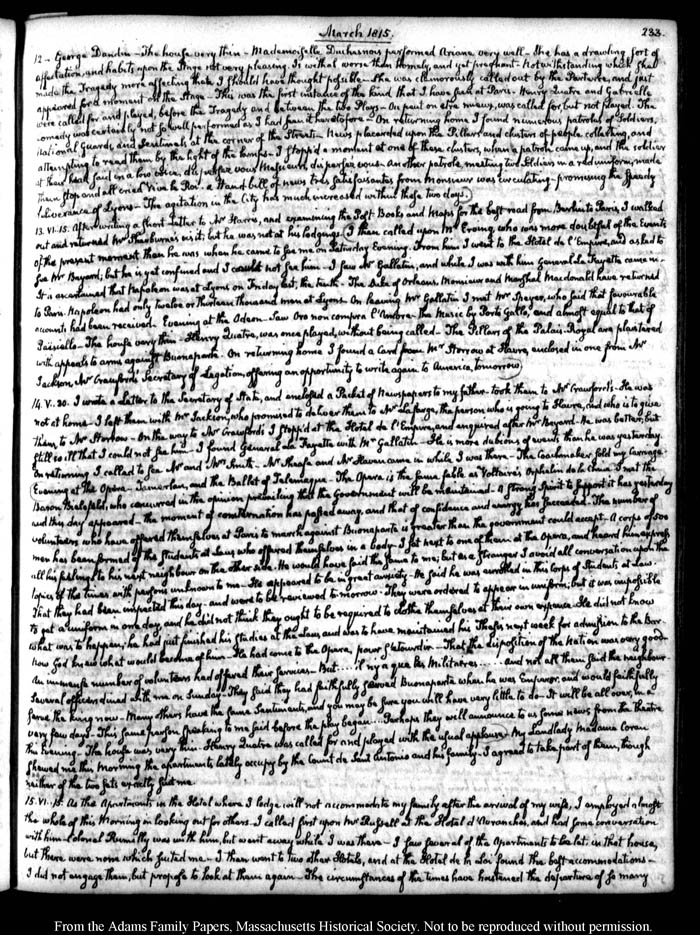 March 1815.
233.
12 – George Dandin – The house very thin – Mademoiselle Duchesnois performed Ariane very well – She has a drawling sort of
affectation, and habits upon the Stage not very pleasing. Is withal worse than homely, and yet pregnant – Notwithstanding which She
made the Tragedy more affecting than I should have thought possible – She was clamorously called out by the Parterre, and just
appeared for a moment on the Stage – This was the first instance of the kind that I have seen at Paris. Henry Quatre and Gabrielle
were called for and played, before the Tragedy and between the two Plays – On peut on etre mieux, was called for but not played. The
comedy was certainly not so well performed as I had seen it heretofore – On returning home I found numerous patroles of Soldiers,
National Guards, and Sentinels at the corner of the Streets – News placarded upon the Pillars and clusters of people collecting, and
attempting to read them by the light of the lamps – I stopp'd a moment at one of these clusters, when a patrole came up, and the soldier
at their head said in a low voice, dispersez vous Messieurs, dispersez vous – Another patrole, meeting two Soldiers in a red uniform, made
them stop and all cried Vive le Roi – a Hand bill of news tres satisfaisantes from Monsieur was circulating – promising the speedy
deliverance of Lyons – The agitation in the City has much increased within these two days.
13. VI. 15. After writing a short letter to Mr Harris, and examining the Post Books and Maps for the best road from Berlin to Paris, I walked
out and returned Mr Thornburne's visit; but he was not at his lodgings. I then called upon Mr Erving, who was more doubtful of the Events
of the present moment than he was when he came to see me on Saturday Evening. From him I went to the Hotel de l'Empire, and asked to
see Mr Bayard; but he is yet confined and I could not see him – I saw Mr Gallatin, and while I was with him General la Fayette came in –
It is ascertained that Napoleon was at Lyons on Friday last, the tenth – The Duke of Orleans, Monsieur and Marshal Macdonald have returned
to Paris. Napoleon had only twelve or thirteen thousand men at Lyons. On leaving Mr Gallatin I met Mr Speyer, who said that favourable
accounts had been received. Evening at the Odeon – Saw Oro non compra l'Amore. The Music by Porto Gallo, and almost equal to that of
Paisiello – The house very thin – Henry Quatre, was once played, without being called – The Pillars of the Palais-Royal are plaistered
with appeals to arms against Buonaparte. On returning home I found a Card from Mr Storrow at Havre, enclosed in one from Mr
Jackson, Mr Crawford's Secretary of Legation, offering an opportunity to write again to America, tomorrow
14. V. 30. I wrote a Letter to the Secretary of State, and enclosed a Packet of Newspapers to my father – took them to Mr Crawford's – He was
not at home – I left them with Mr Jackson, who promised to deliver them to Mr Laforge, the person who is going to Havre, and who is to give
them to Mr Storrow – On the way to Mr Crawford's I stopp'd at the Hotel de l'Empire, and enquired after Mr Bayard. He was better, but
still so ill that I could not see him – I found General La Fayette with Mr Gallatin – He is more dubious of events than he was yesterday.
On returning I called to see Mr and Mrs Smith – Mr Shaefe and Mr Haven came in while I was there – The Coachmaker sold my Carriage
Evening at the Opera – Tamerlan, and the Ballet of Telemaque – The Opera is the same fable as Voltaire's Orphelin de la Chine – I met the
Baron Bielefeld, who concurred in the opinion prevailing that the Government will be maintained – A strong Spirit to support it has yesterday
and this day appeared – the moment of consternation has passed away, and that of confidence and energy has succeeded. The number of
volunteers who have offered themselves at Paris to march against Buonaparte is greater than the government could accept – A corps of 500
men has been formed of the Students at Law, who offered themselves in a body – I sat next to one of them at the Opera, and heard him express
all his feelings to his next neighbour on the other side. He would have said the same to me; but as a Stranger I avoid all conversation upon the
topics of the times with persons unknown to me – He appeared to be in great anxiety – He said he was enrolled in this Corps of Students at Law –
that they had been inspected this day; and were to be reviewed to-morrow – They were ordered to appear in uniform; but it was impossible
to get a uniform in one day, and he did not think they ought to be required to clothe themselves at their own expence. He did not know
what was to happen; he had just finished his studies at the Law, and was to have maintained his Thesis next week for admission to the Bar –
Now God knew what would become of him – He had come to the Opera, pour s'etourdir – That the disposition of the Nation was very good –
An immense number of volunteers had offered their services – But.... il n'y a que les Militaires...... and not all them said the neighbour –
Several officers dined with me on Sunday – They said they had faithfully served Buonaparte when he was Emperor, and would faithfully
serve the king now – Many others have the same Sentiments, and you may be sure you will have very little to do – It will be all over, in a
very few days – This same person speaking to me said before the play began.... Perhaps they will announce to us some news from the theatre
this Evening – The house was very thin – Henry Quatre was called for and played with the usual applause – My Landlady Madame Coran
shewed me this Morning the apartments lately occupy by the Count de San Antonio and his family – I agreed to take part of them, though
neither of the two sets exactly suit me
15. VI. 15. As the Apartments in the Hotel where I lodge will not accommodate my family after the arrival of my wife, I employed almost
the whole of this Morning in looking out for others. I called first upon Mr Russell at the Hotel d'Avranches, and had some conversation
with him – Colonel Rumilly was with him, but went away while I was there – I saw several of the Apartments to be let, in that house,
but there were none which suited me – I then went to two other Hotels, and at the Hotel de la Loi found the best accommodations –
I did not engage them, but propose to look at them again – The circumstances of the times have hastened the departure of so many
From the Adams Family Papers, Massachusetts Historical Society. Not to be reproduced without permission.